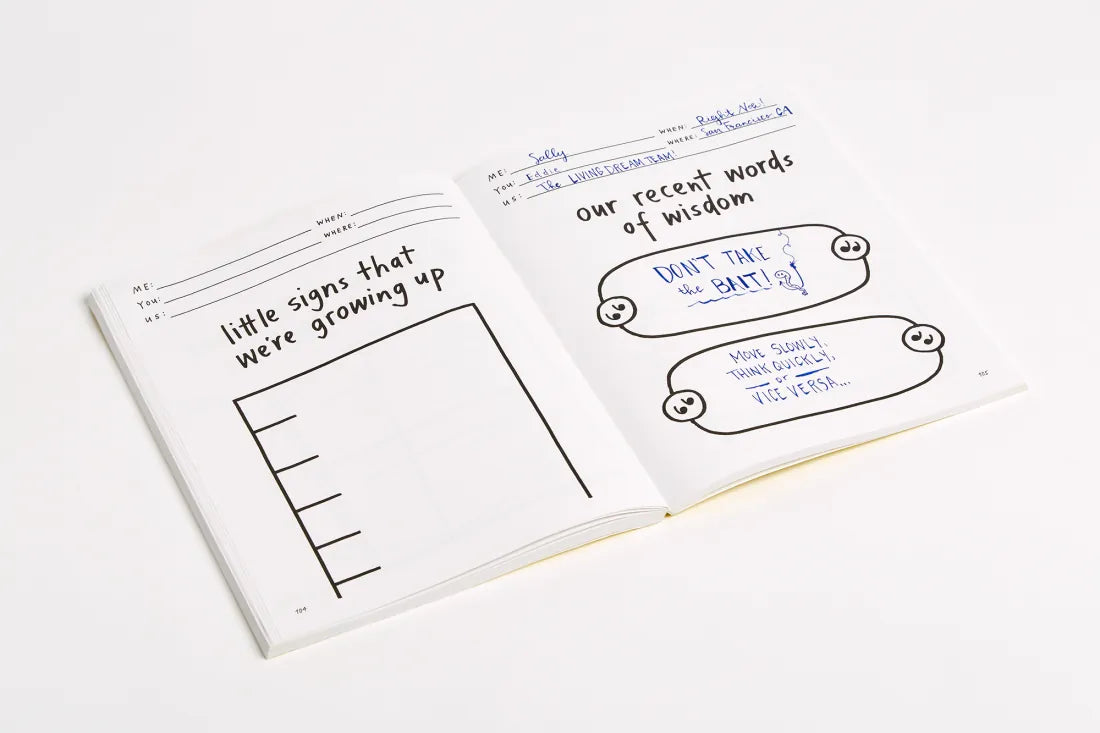 ME:
WHEN:
YOU:
WHERE:
US:
little signs that
we're growing up
104
ME: Sally
WHEN: Right Now!
YOU: Eddie
WHERE: San Francisco CA
US: The LIVING DREAM TEAM!
our recent words
of wisdom
DON'T TAKE
the BAIT!
MOVE SLOWLY,
THINK QUICKLY,
or
VICE VERSA...
105